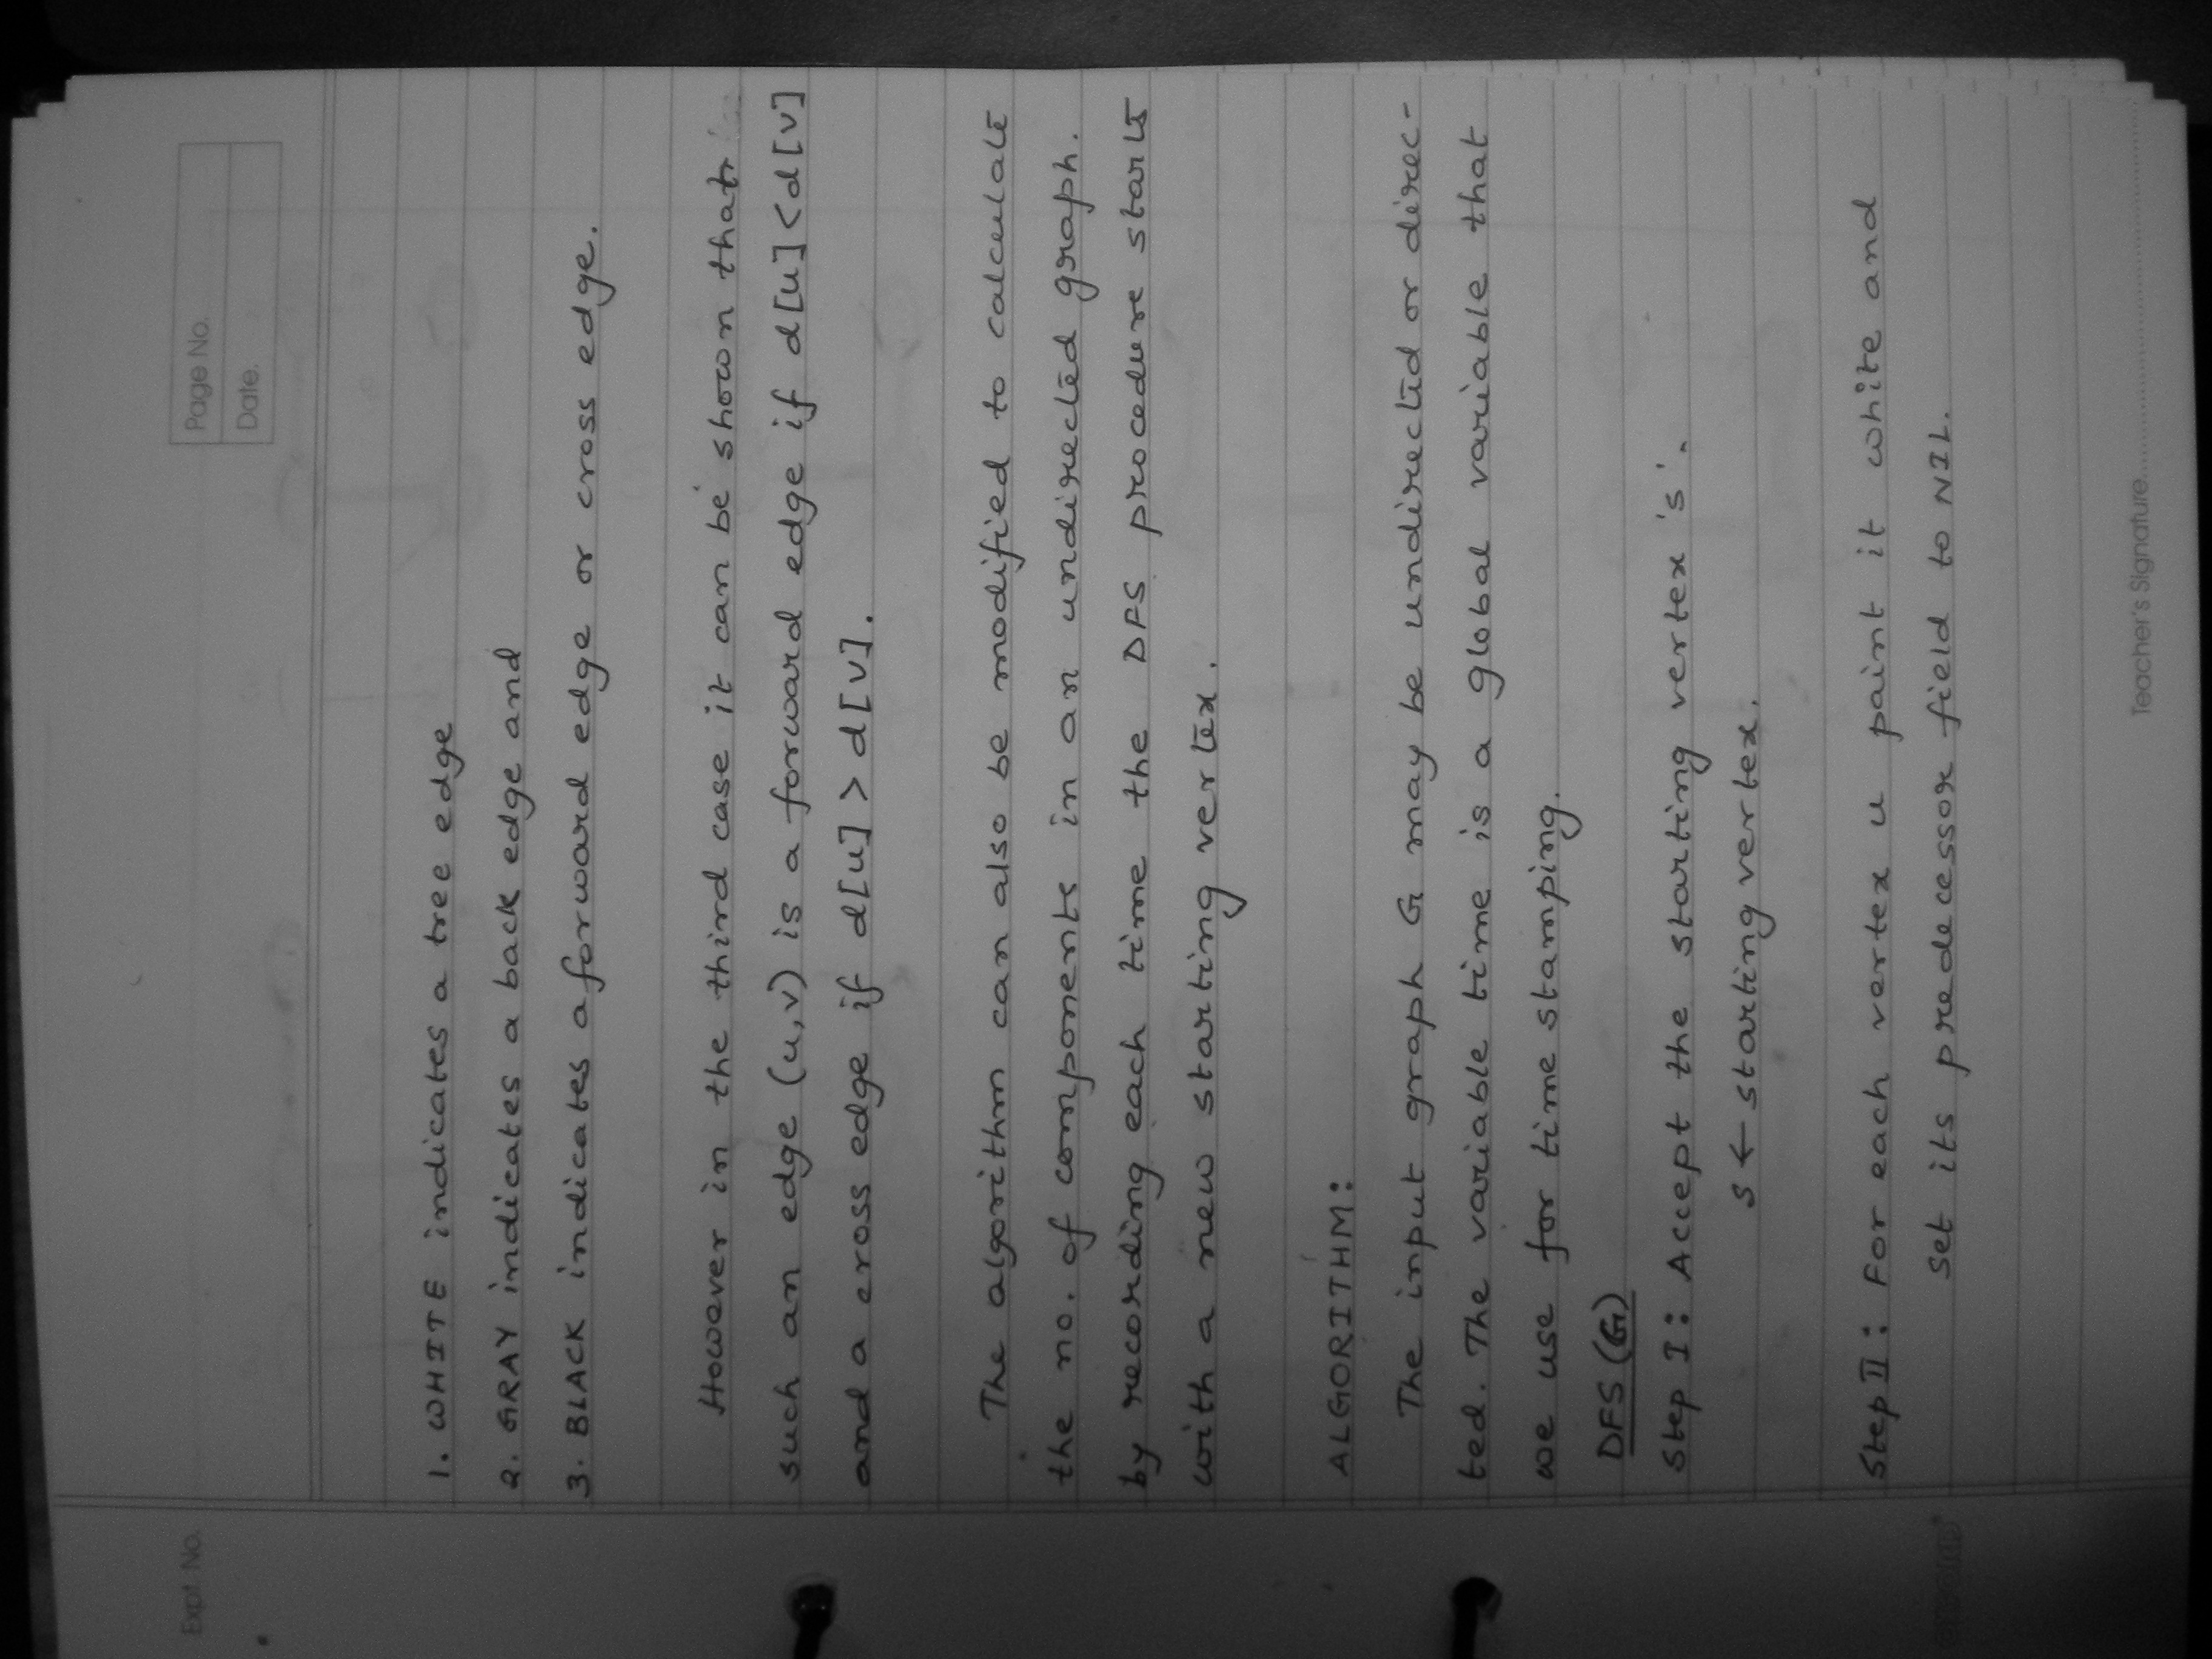 Expt. No.
Page No.
Date.
1. WHITE indicates a tree edge
2. GRAY indicates a back edge and
3. BLACK indicates a forward edge or cross edge.
However in the third case it can be shown that
such an edge (u,v) is a forward edge if d[u]<d[v]
and a cross edge if d[u] > d[v].
The algorithm can also be modified to calculate
the no. of components in an undirected graph.
by recording each time the DFS procedure starts
with a new starting vertex.
ALGORITHM:
The input graph G may be undirected or direc-
ted. The variable time is a global variable that
we use for time stamping.
DFS (G)
Step I: Accept the starting vertex 's'.
s ← starting vertex.
Step II: For each vertex u paint it white and
set its predecessor field to NIL.
Teacher's Signature